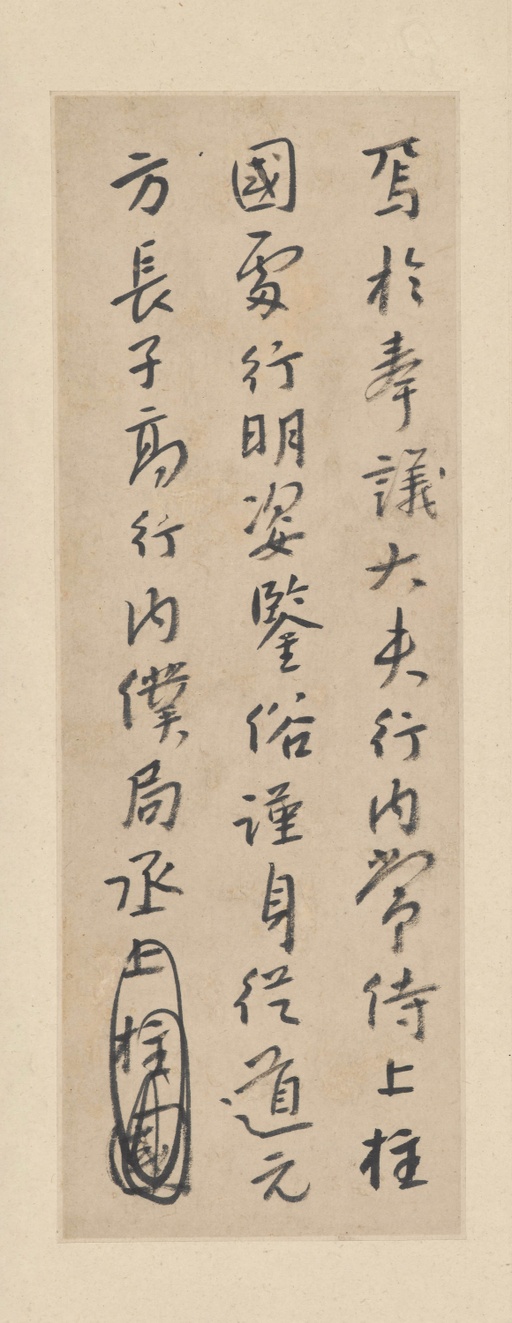 焉於奉議大夫行內常侍上柱
國處行明姿鑒俗謹身從道元
方長子高行內僕局丞上柱國